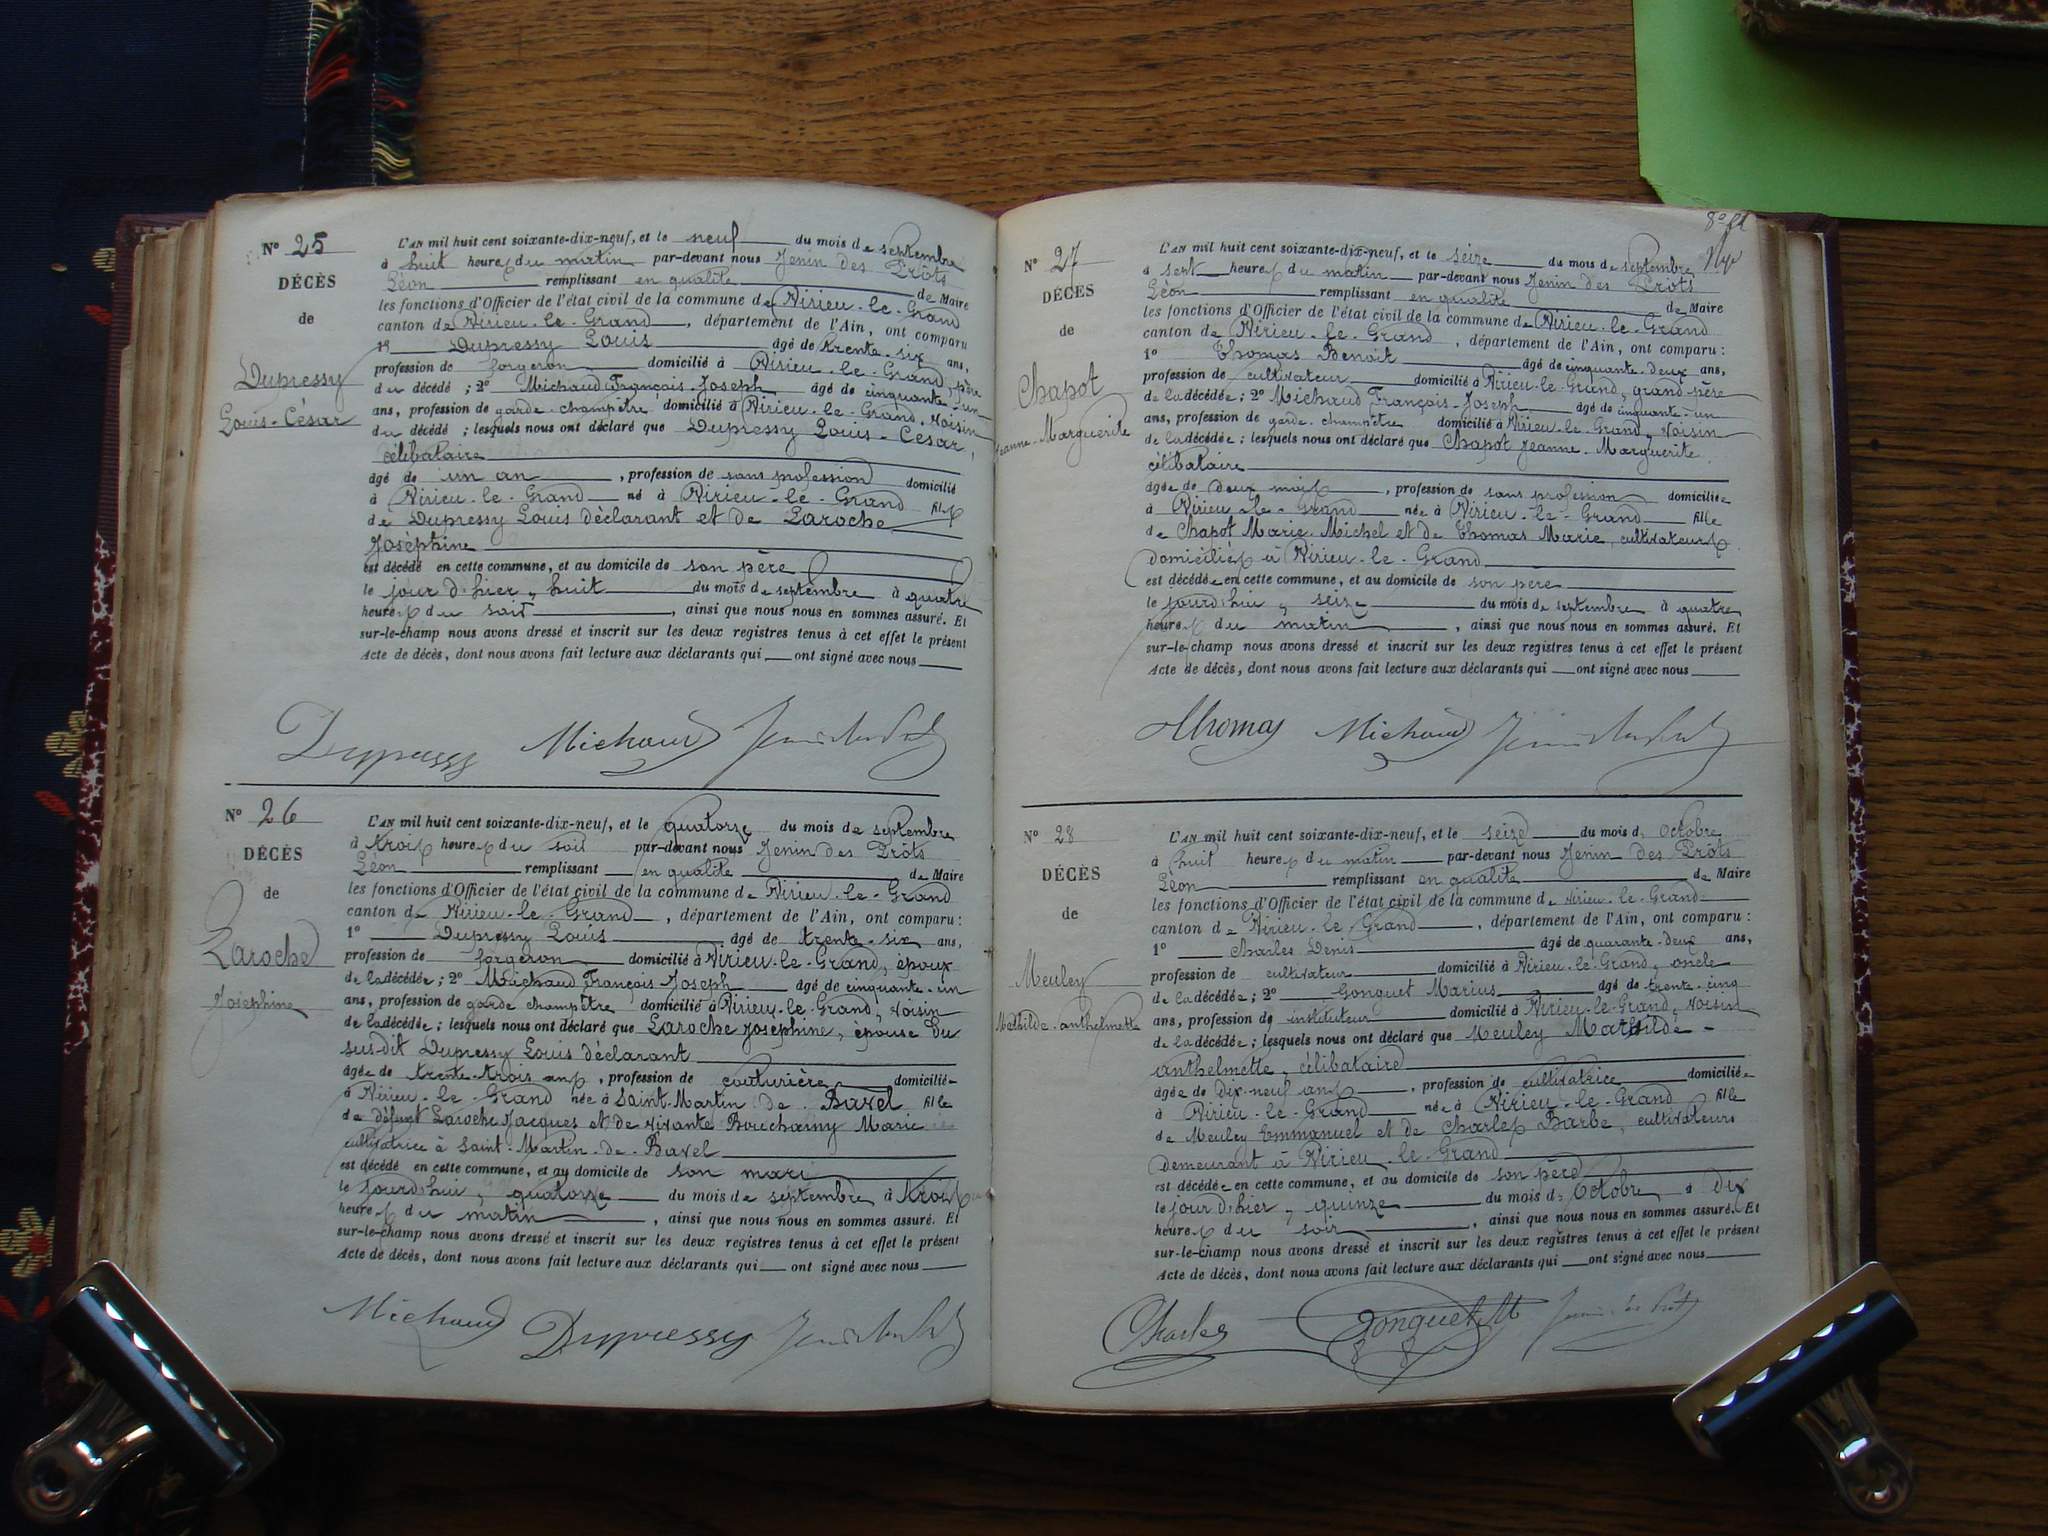 N° 25
DÉCÈS
de
Dupressy
Louis-César
L'AN mil huit cent soixante-dix-neuf, et le neuf du mois de septembre
à huit heures du matin par-devant nous Jenin des Prôts
Léon remplissant en qualité de Maire
les fonctions d'Officier de l'état civil de la commune de Virieu-le-Grand
canton de Virieu-le-Grand, département de l'Ain, ont comparu
1° Dupressy Louis âgé de trente-six ans,
profession de forgeron domicilié à Virieu-le-Grand, père
du décédé ; 2° Michaud François-Joseph âgé de cinquante-un
ans, profession de garde-champêtre domicilié à Virieu-le-Grand, voisin
du décédé ; lesquels nous ont déclaré que Dupressy Louis-César,
célibataire
âgé de un an, profession de sans profession domicilié
à Virieu-le-Grand né à Virieu-le-Grand fils
de Dupressy Louis déclarant et de Laroche
Joséphine
est décédé en cette commune, et au domicile de son père
le jour d'hier, huit du mois de septembre à quatre
heures du soir, ainsi que nous nous en sommes assuré. Et
sur-le-champ nous avons dressé et inscrit sur les deux registres tenus à cet effet le présent
Acte de décès, dont nous avons fait lecture aux déclarants qui ont signé avec nous
Dupressy Michaud Jenin des Prôts
N° 26
DÉCÈS
de
Laroche
Joséphine
L'AN mil huit cent soixante-dix-neuf, et le quatorze du mois de septembre
à trois heures du soir par-devant nous Jenin des Prôts
Léon remplissant en qualité de Maire
les fonctions d'Officier de l'état civil de la commune de Virieu-le-Grand
canton de Virieu-le-Grand, département de l'Ain, ont comparu :
1° Dupressy Louis âgé de trente-six ans,
profession de forgeron domicilié à Virieu-le-Grand, époux
de la décédée ; 2° Michaud François Joseph âgé de cinquante-un
ans, profession de garde champêtre domicilié à Virieu-le-Grand, voisin
de la décédée ; lesquels nous ont déclaré que Laroche Joséphine, épouse du
susdit Dupressy Louis déclarant
âgée de trente-trois ans, profession de couturière domiciliée
à Virieu-le-Grand née à Saint-Martin de Bavel fille
de défunt Laroche Jacques et de vivante Bouchainy Marie
cultivatrice à Saint-Martin-de-Bavel
est décédé en cette commune, et au domicile de son mari
le jourd'hui, quatorze du mois de septembre à trois
heures du matin, ainsi que nous nous en sommes assuré. Et
sur-le-champ nous avons dressé et inscrit sur les deux registres tenus à cet effet le présent
Acte de décès, dont nous avons fait lecture aux déclarants qui ont signé avec nous
Michaud Dupressy Jenin des Prôts
N° 27
DÉCÈS
de
Chapot
Jeanne-Marguerite
L'AN mil huit cent soixante-dix-neuf, et le seize du mois de septembre
à sept heures du matin par-devant nous Jenin des Prôts
Léon remplissant en qualité de Maire
les fonctions d'Officier de l'état civil de la commune de Virieu-le-Grand
canton de Virieu-le-Grand, département de l'Ain, ont comparu :
1° Thomas Benoit âgé de cinquante-deux ans,
profession de cultivateur domicilié à Virieu-le-Grand, grand-père
de la décédée ; 2° Michaud François-Joseph âgé de cinquante-un
ans, profession de garde-champêtre domicilié à Virieu-le-Grand, voisin
de la décédée ; lesquels nous ont déclaré que Chapot Jeanne-Marguerite,
célibataire
âgée de deux mois, profession de sans profession domiciliée
à Virieu-le-Grand née à Virieu-le-Grand fille
de Chapot Marie-Michel et de Thomas Marie, cultivateurs
domiciliés à Virieu-le-Grand
est décédée en cette commune, et au domicile de son père
le jourd'hui, seize du mois de septembre à quatre
heures du matin, ainsi que nous nous en sommes assuré. Et
sur-le-champ nous avons dressé et inscrit sur les deux registres tenus à cet effet le présent
Acte de décès, dont nous avons fait lecture aux déclarants qui ont signé avec nous
Thomas Michaud Jenin des Prôts
N° 28
DÉCÈS
de
Meuley
Mathilde-anthelmette
L'AN mil huit cent soixante-dix-neuf, et le seize du mois d'Octobre
à huit heures du matin par-devant nous Jenin des Prôts
Léon remplissant en qualité de Maire
les fonctions d'Officier de l'état civil de la commune de Virieu-le-Grand
canton de Virieu-le-Grand, département de l'Ain, ont comparu :
1° Charles Denis âgé de quarante-deux ans,
profession de cultivateur domicilié à Virieu-le-Grand, oncle
de la décédée ; 2° Gonguet Marius âgé de trente-cinq
ans, profession de instituteur domicilié à Virieu-le-Grand, voisin
de la décédée ; lesquels nous ont déclaré que Meuley Mathilde-
anthelmette, célibataire
âgée de Dix-neuf ans, profession de cultivatrice domiciliée
à Virieu-le-Grand née à Virieu-le-Grand fille
de Meuley Emmanuel et de Charles Barbe, cultivateurs
demeurant à Virieu-le-Grand
est décédée en cette commune, et au domicile de son père
le jour d'hier, quinze du mois d'Octobre à Dix
heures du soir, ainsi que nous nous en sommes assuré. Et
sur-le-champ nous avons dressé et inscrit sur les deux registres tenus à cet effet le présent
Acte de décès, dont nous avons fait lecture aux déclarants qui ont signé avec nous
Charles Gonguet Jenin des Prôts